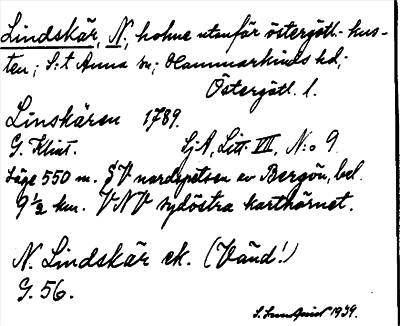 Lindskär, N, holme utanför östergötl. kus-
ten; S:t Anna sn; Hammarkinds hd;
Östergötl. l.
Linskären 1789.
G. Klint. SjA, Litt. VII, N:o 9.
Läge 550 m. SV nordspetsen av Bergön, bel.
9 1/2 km. VNV sydöstra karthörnet.
N. Lindskär ek. (Vänd!)
G. 56.
1939.